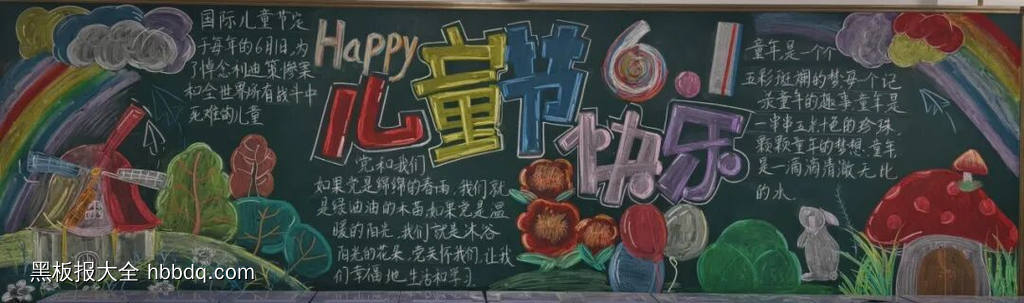 国际儿童节定
于每年的6月1日,为
了悼念利迪策惨案
和全世界所有战斗中
死难的儿童
Happy
6.1
儿童节
快乐
党和我们
如果党是绵绵的春雨,我们就
是绿油油的禾苗,如果党是温
暖的阳光,我们就是沐浴
阳光的花朵,党关怀我们,让我
们幸福地生活和学习.
童年是一个个
五彩斑斓的梦每一个记
录童年的趣事童年是
一串串五光十色的珍珠,
颗颗童年的梦想,童年
是一滴滴清澈无比
的水.
黑板报大全 hbbdq.com